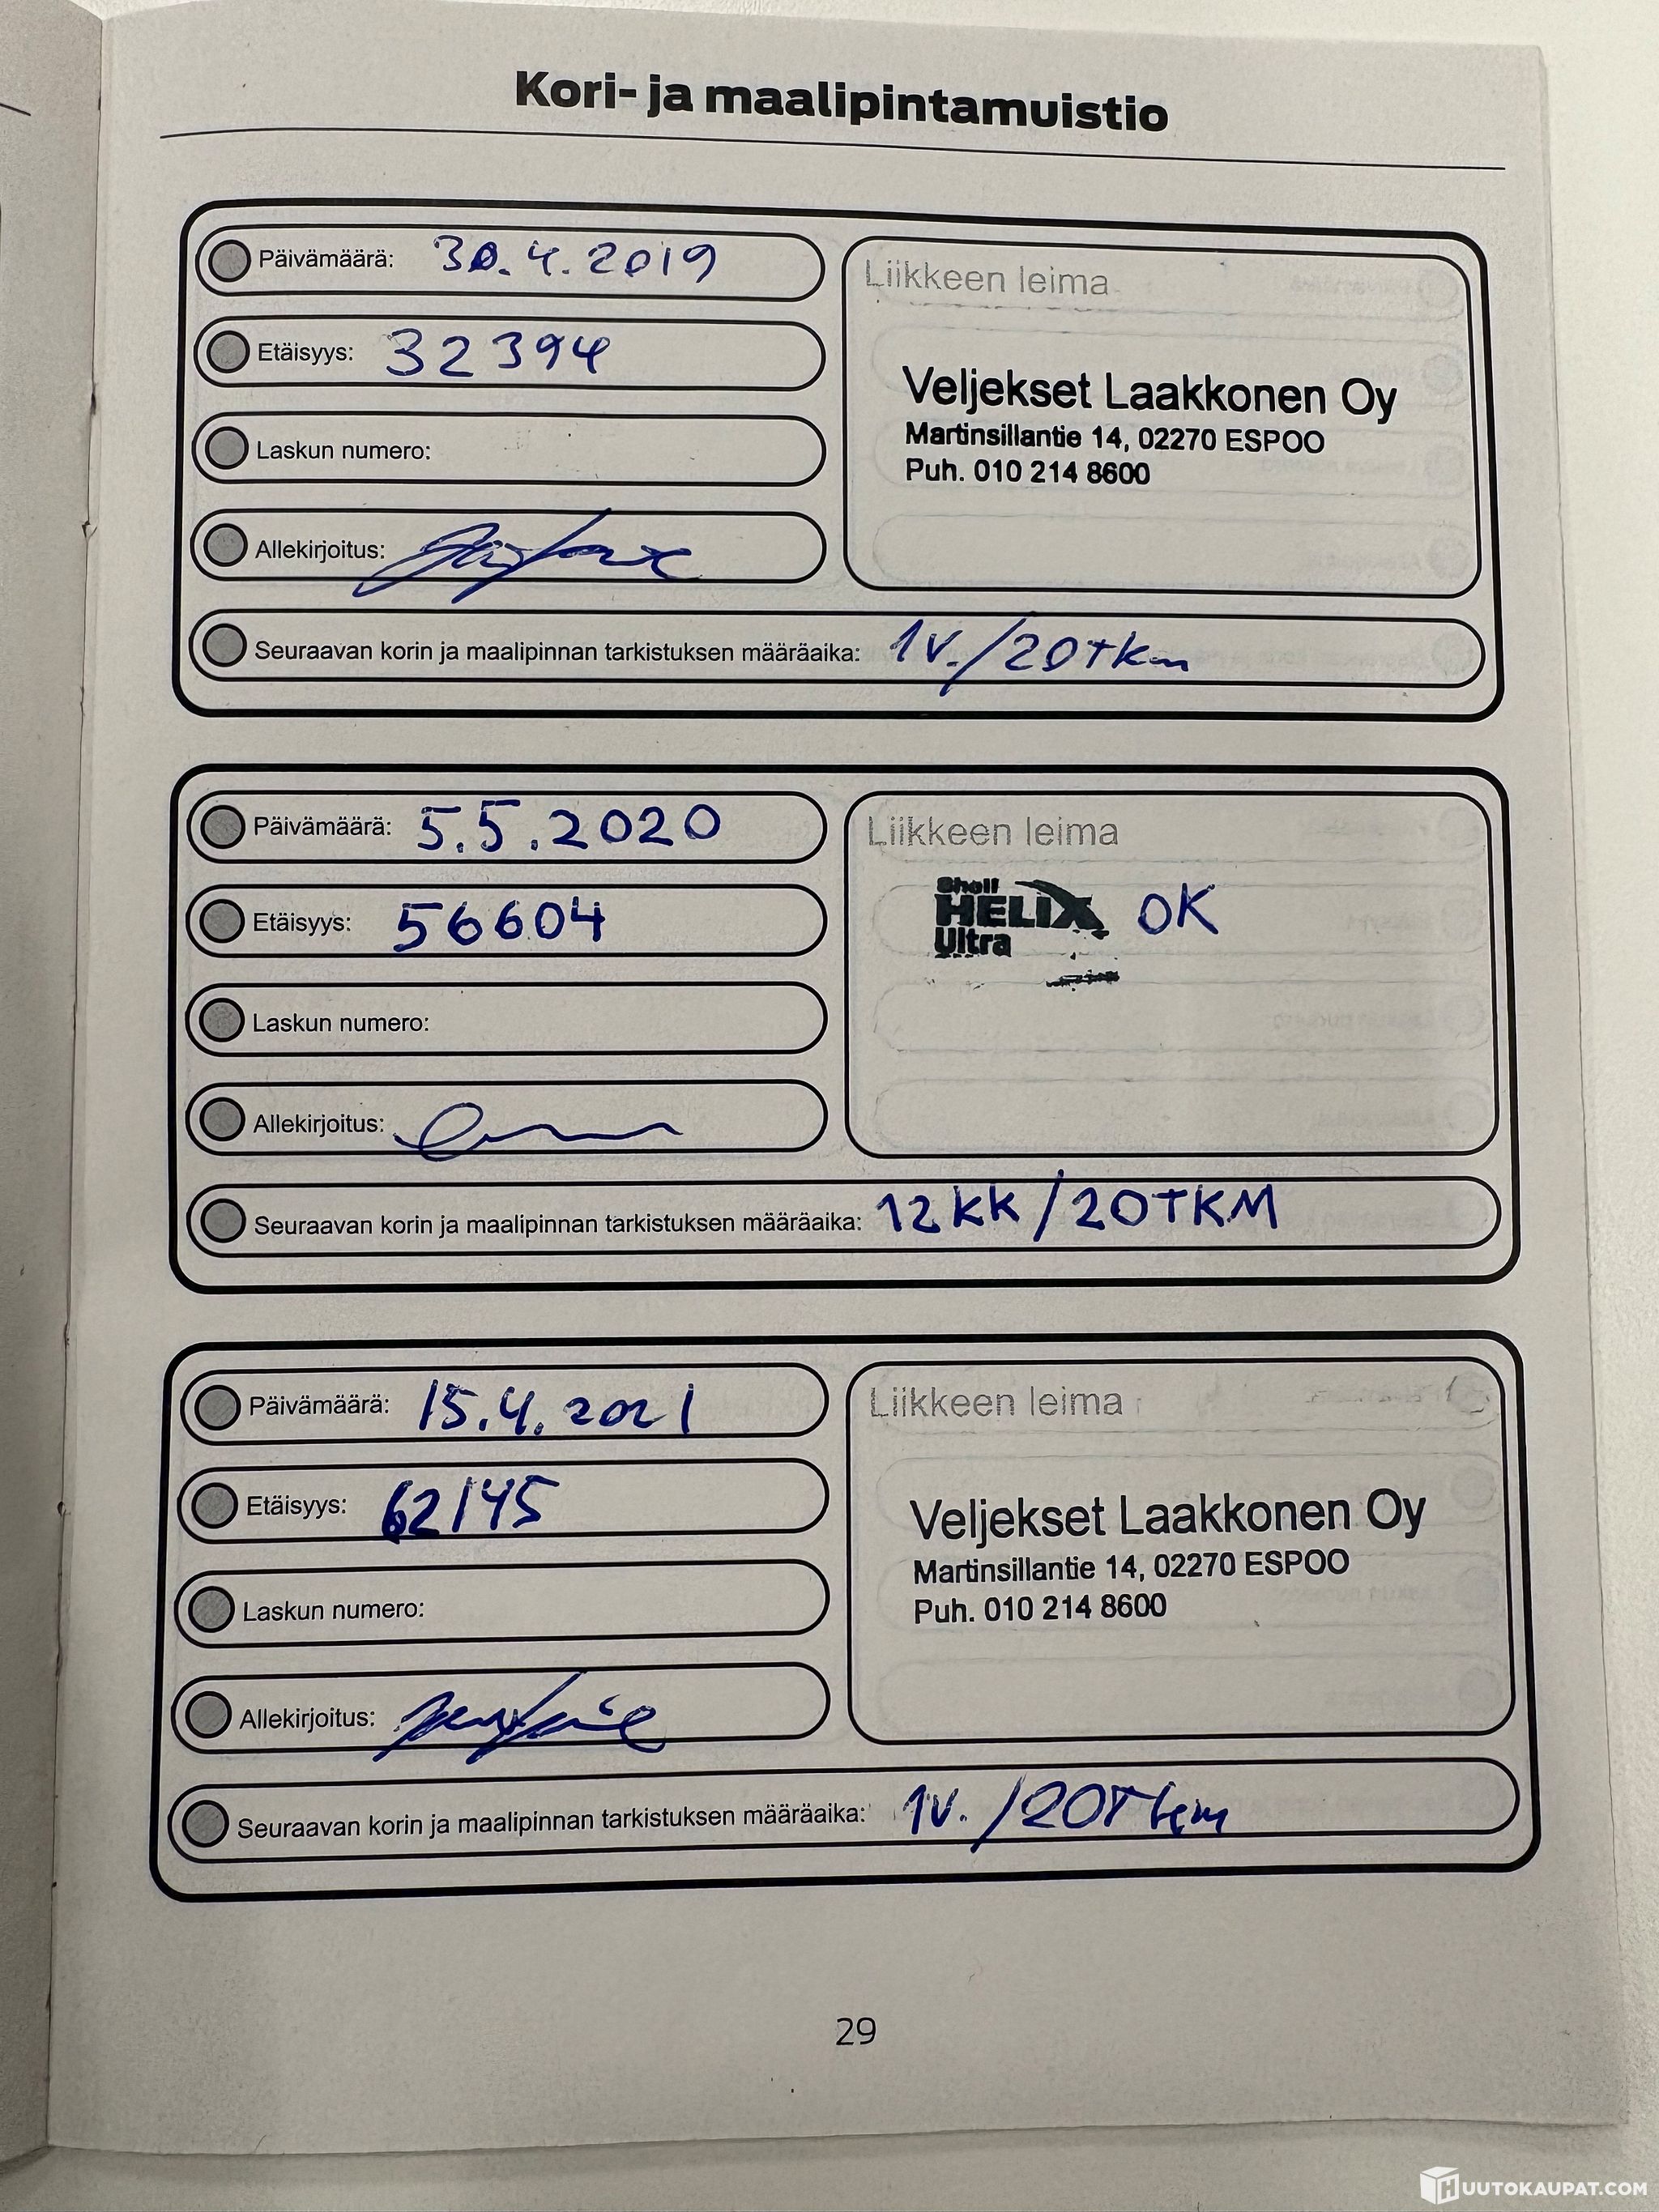 Kori- ja maalipintamuistio
Päivämäärä: 30.4.2019
Etäisyys: 32394
Laskun numero:
Allekirjoitus:
Liikkeen leima
Veljekset Laakkonen Oy
Martinsillantie 14, 02270 ESPOO
Puh. 010 214 8600
Seuraavan korin ja maalipinnan tarkistuksen määräaika: 1v./20tkm
Päivämäärä: 5.5.2020
Etäisyys: 56604
Laskun numero:
Allekirjoitus:
Liikkeen leima
Shell
HELIX OK
Ultra
Seuraavan korin ja maalipinnan tarkistuksen määräaika: 12KK/20TKM
Päivämäärä: 15.4.2021
Etäisyys: 62145
Laskun numero:
Allekirjoitus:
Liikkeen leima
Veljekset Laakkonen Oy
Martinsillantie 14, 02270 ESPOO
Puh. 010 214 8600
Seuraavan korin ja maalipinnan tarkistuksen määräaika: 1v./20Tkm
29
HUUTOKAUPAT.COM